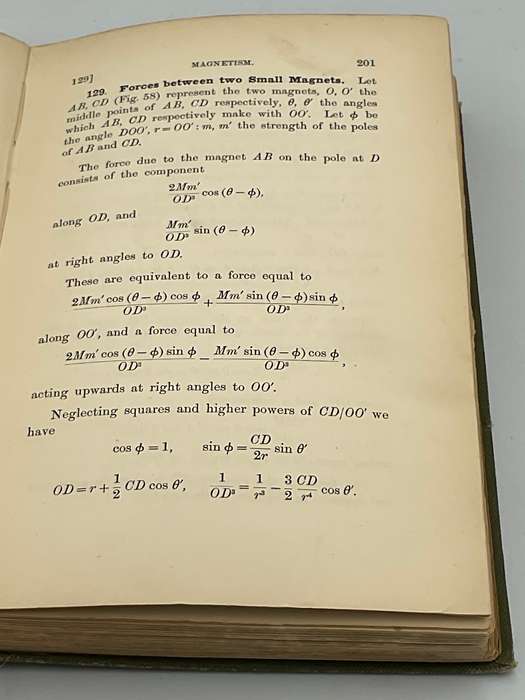 MAGNETISM. 201
129]
129. Forces between two Small Magnets. Let
AB, CD (Fig. 58) represent the two magnets, O, O′ the
middle points of AB, CD respectively, θ, θ′ the angles
which AB, CD respectively make with OO′. Let ϕ be
the angle DOO′, r = OO′ : m, m′ the strength of the poles
of AB and CD.
The force due to the magnet AB on the pole at D
consists of the component
2Mm′/OD³ cos (θ − ϕ),
along OD, and
Mm′/OD³ sin (θ − ϕ)
at right angles to OD.
These are equivalent to a force equal to
2Mm′ cos (θ − ϕ) cos ϕ/OD³ + Mm′ sin (θ − ϕ) sin ϕ/OD³,
along OO′, and a force equal to
2Mm′ cos (θ − ϕ) sin ϕ/OD³ − Mm′ sin (θ − ϕ) cos ϕ/OD³,
acting upwards at right angles to OO′.
Neglecting squares and higher powers of CD/OO′ we
have
cos ϕ = 1, sin ϕ = CD/2r sin θ′
OD = r + 1/2 CD cos θ′, 1/OD³ = 1/r³ − 3/2 CD/r⁴ cos θ′.